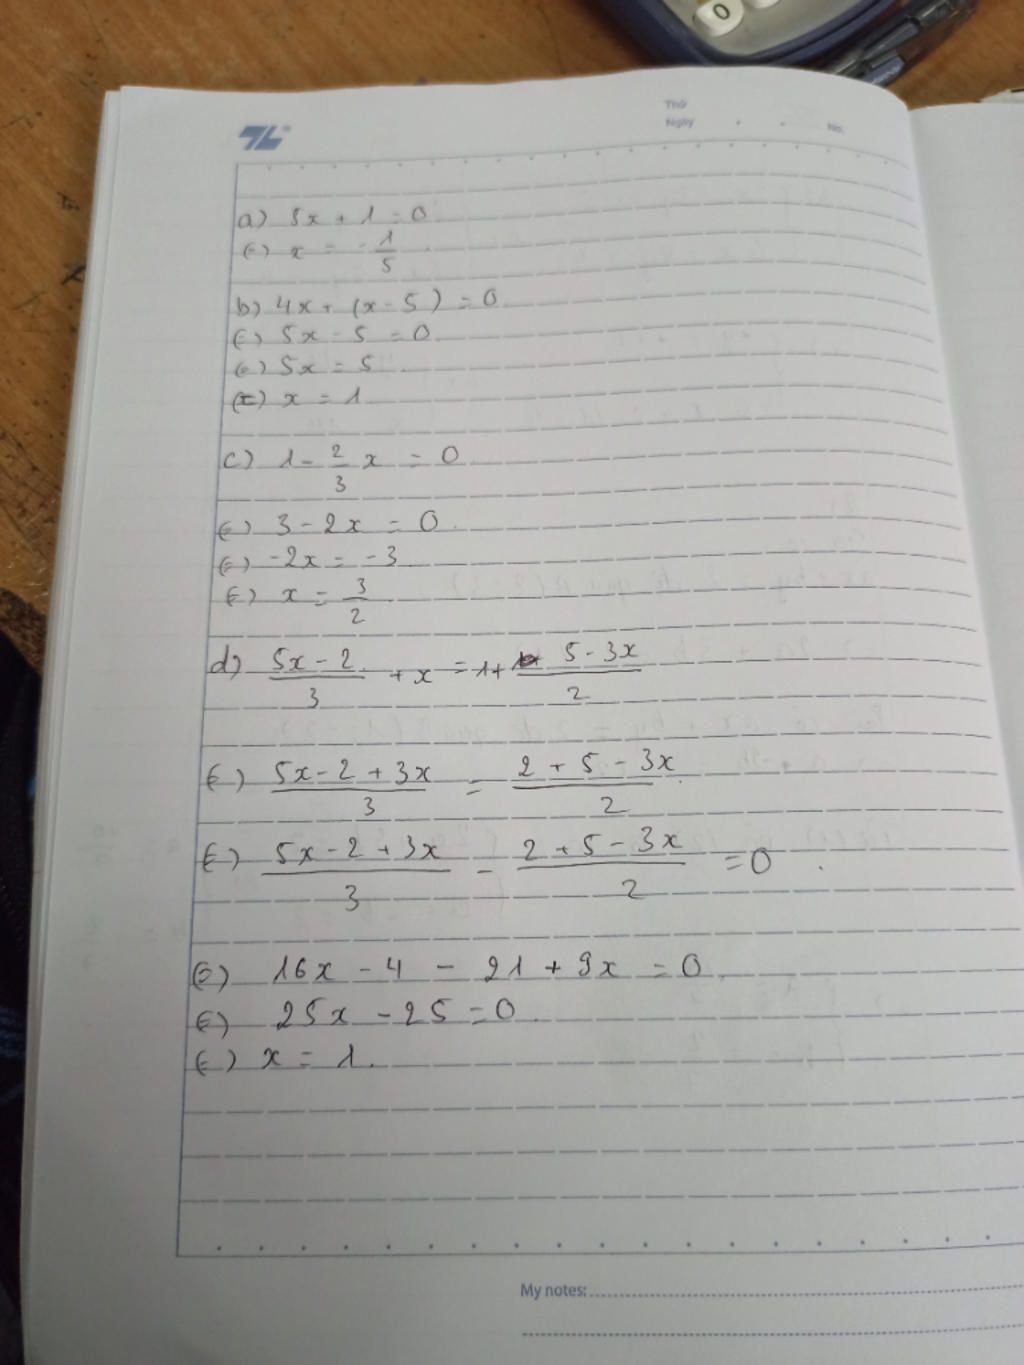 0
TL
Thứ
Ngày
No.
a) 5x + 1 = 0
(=) x = - 1/5
b) 4x + (x - 5) = 0
(=) 5x - 5 = 0
(=) 5x = 5
(=) x = 1
c) 1 - 2/3 x = 0
(=) 3 - 2x = 0
(=) -2x = -3
(=) x = 3/2
d) (5x - 2)/3 + x = 1 + (5 - 3x)/2
(=) (5x - 2 + 3x)/3 = (2 + 5 - 3x)/2
(=) (5x - 2 + 3x)/3 - (2 + 5 - 3x)/2 = 0
(=) 16x - 4 - 21 + 9x = 0
(=) 25x - 25 = 0
(=) x = 1.
My notes: